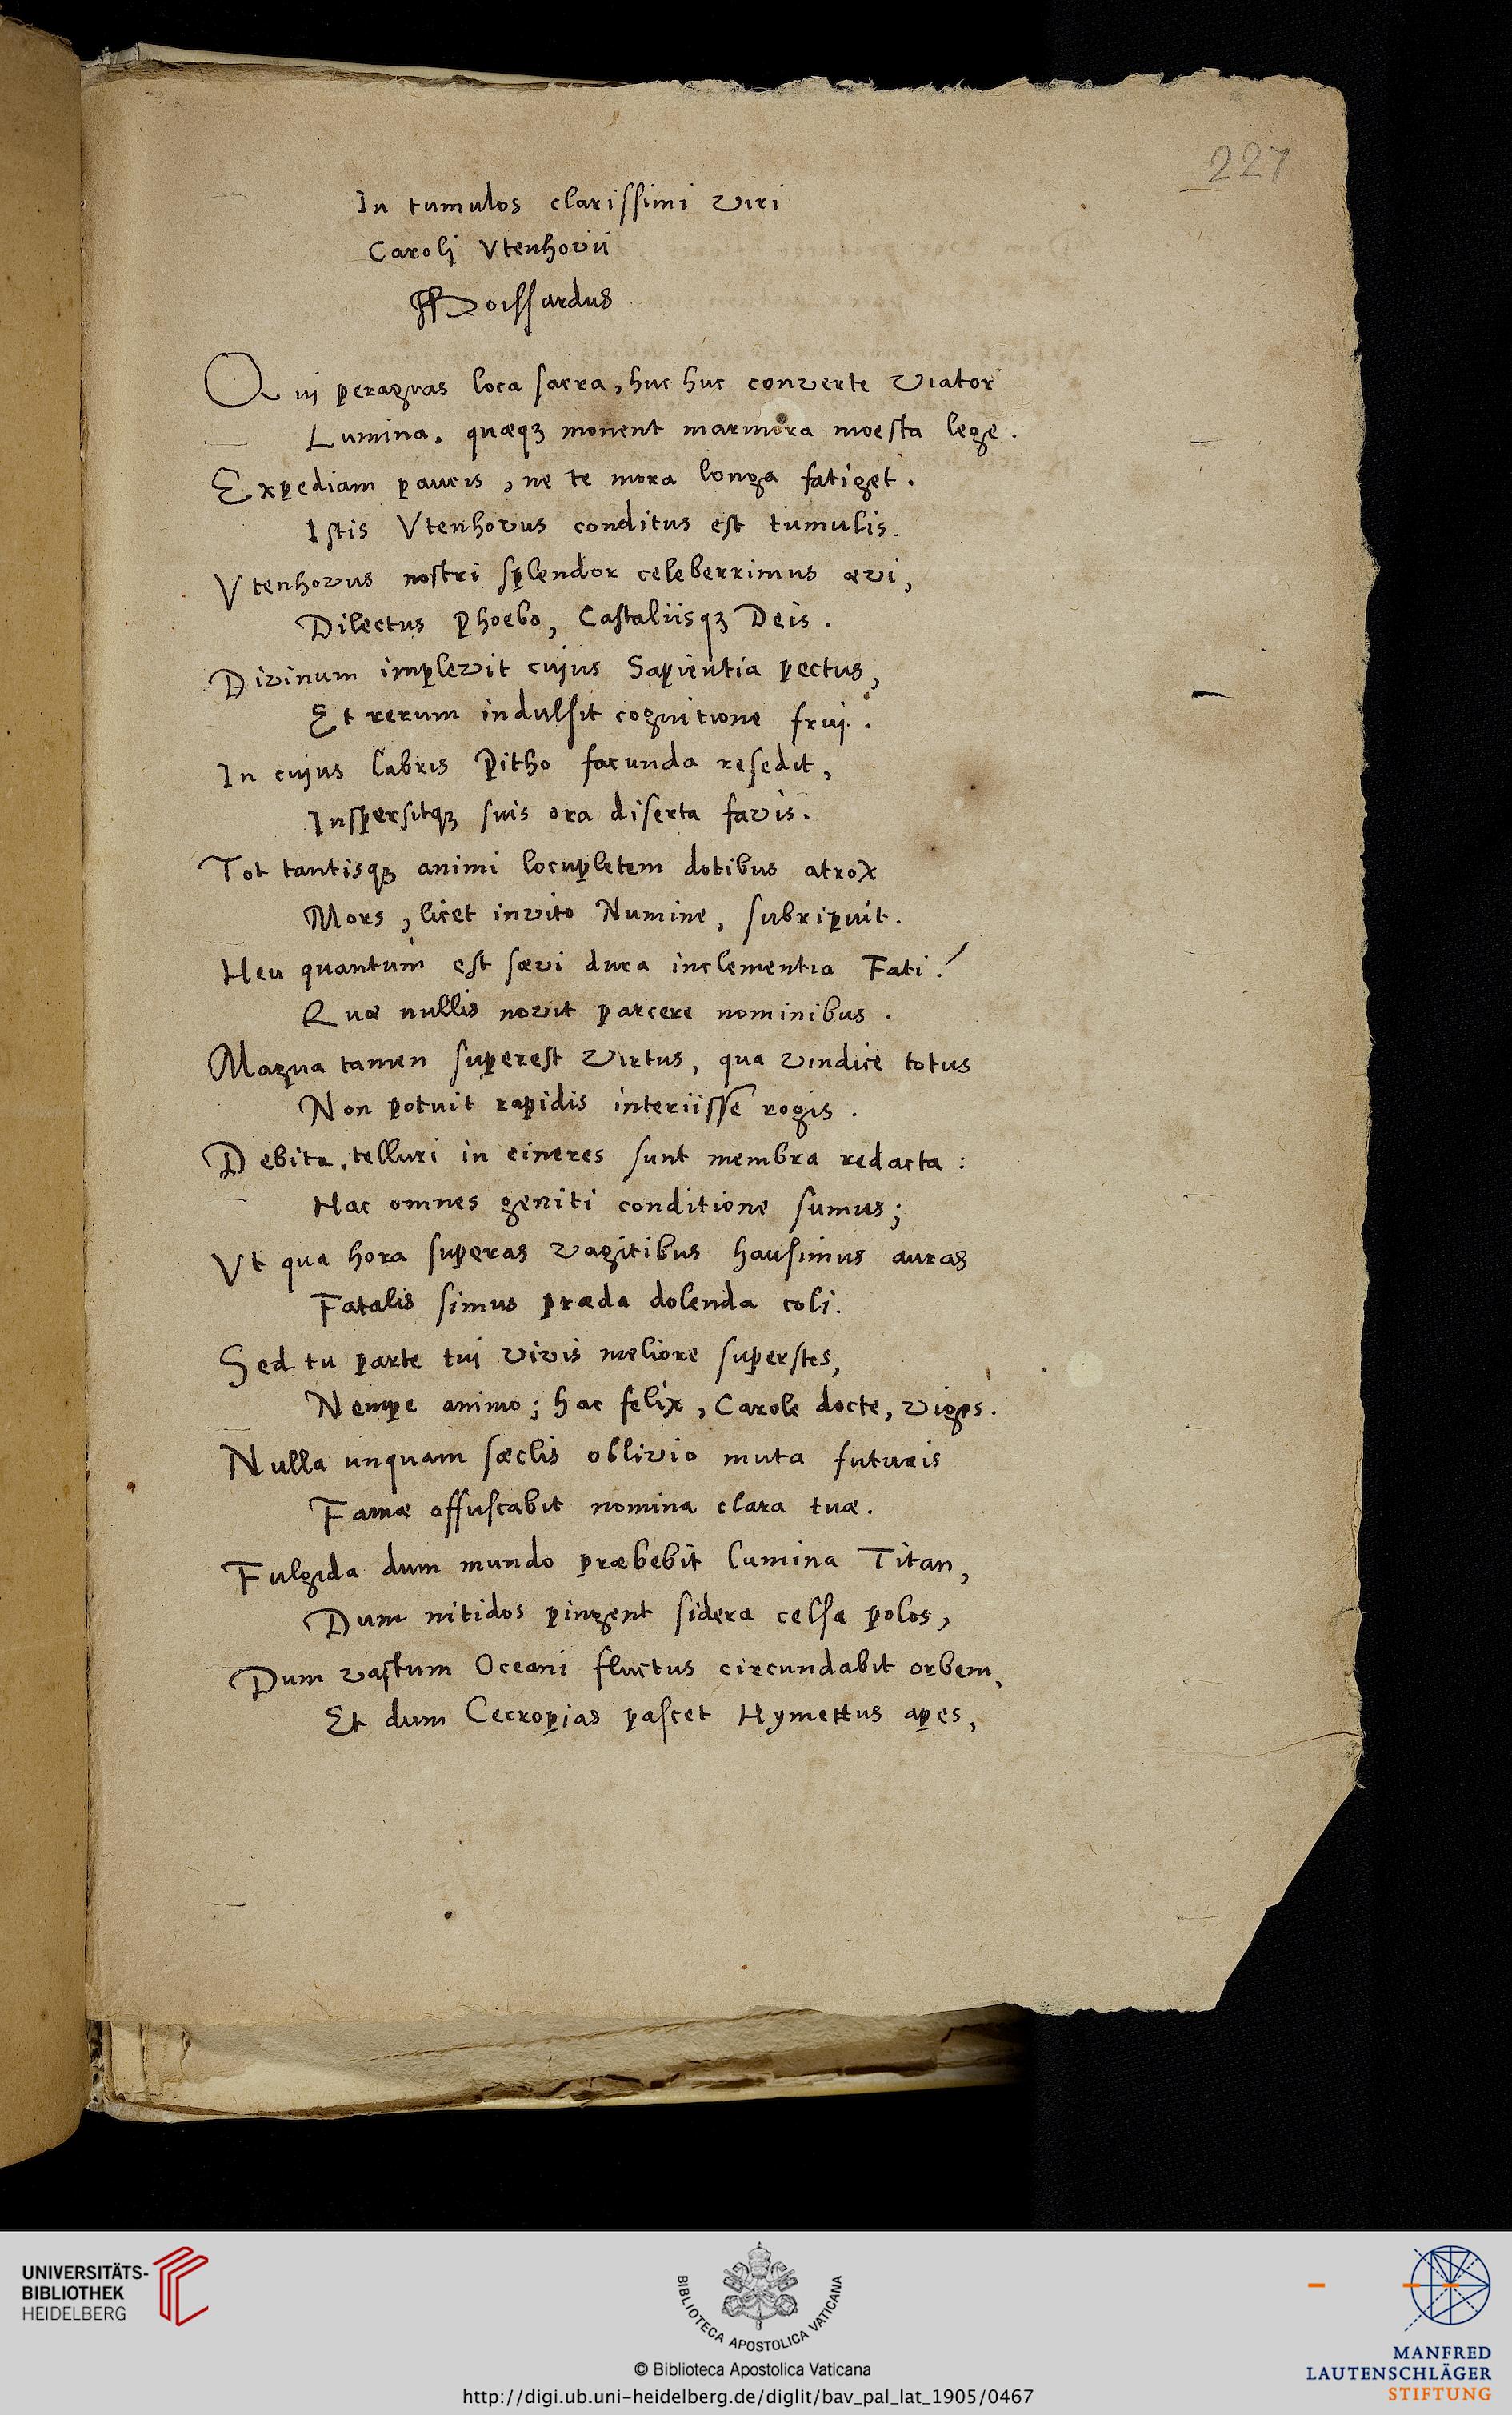 227
In tumulos clarissimi viri
Caroli Vtenhovii
Boissardus
Qui peragras loca sacra, huc huc converte viator
Lumina, quæqꝫ monent marmora moesta lege.
Expediam paucis, ne te mora longa fatiget.
Istis Vtenhovus conditus est tumulis.
Vtenhovus nostri splendor celeberrimus ævi,
Dilectus Phoebo, Castaliisqꝫ Deis.
Divinum implevit cujus Sapientia pectus,
Et rerum indulsit cognitione frui.
In cujus labris Pitho facunda resedit,
Inspersitqꝫ suis ora diserta favis.
Tot tantisqꝫ animi locupletem dotibus atrox
Mors, licet invito Numine, subripuit.
Heu quantum est sævi dura inclementia Fati!
Quæ nullis novit parcere nominibus.
Magna tamen superest virtus, qua vindice totus
Non potuit rapidis interiisse rogis.
Debita telluri in cineres sunt membra redacta:
Hac omnes geniti conditione sumus;
Vt qua hora superas vagitibus hausimus auras
Fatalis simus præda dolenda coli.
Sed tu parte tui vivis meliore superstes,
Nempe animo; hac felix, Carole docte, viges.
Nulla unquam sæclis oblivio muta futuris
Famæ offuscabit nomina clara tuæ.
Fulgida dum mundo præbebit lumina Titan,
Dum nitidos pingent sidera celsa polos,
Dum vastum Oceani fluctus circundabit orbem,
Et dum Cecropias pascet Hymettus apes,
UNIVERSITÄTS-
BIBLIOTHEK
HEIDELBERG
BIBLIOTECA APOSTOLICA VATICANA
© Biblioteca Apostolica Vaticana
http://digi.ub.uni-heidelberg.de/diglit/bav_pal_lat_1905/0467
MANFRED
LAUTENSCHLÄGER
STIFTUNG